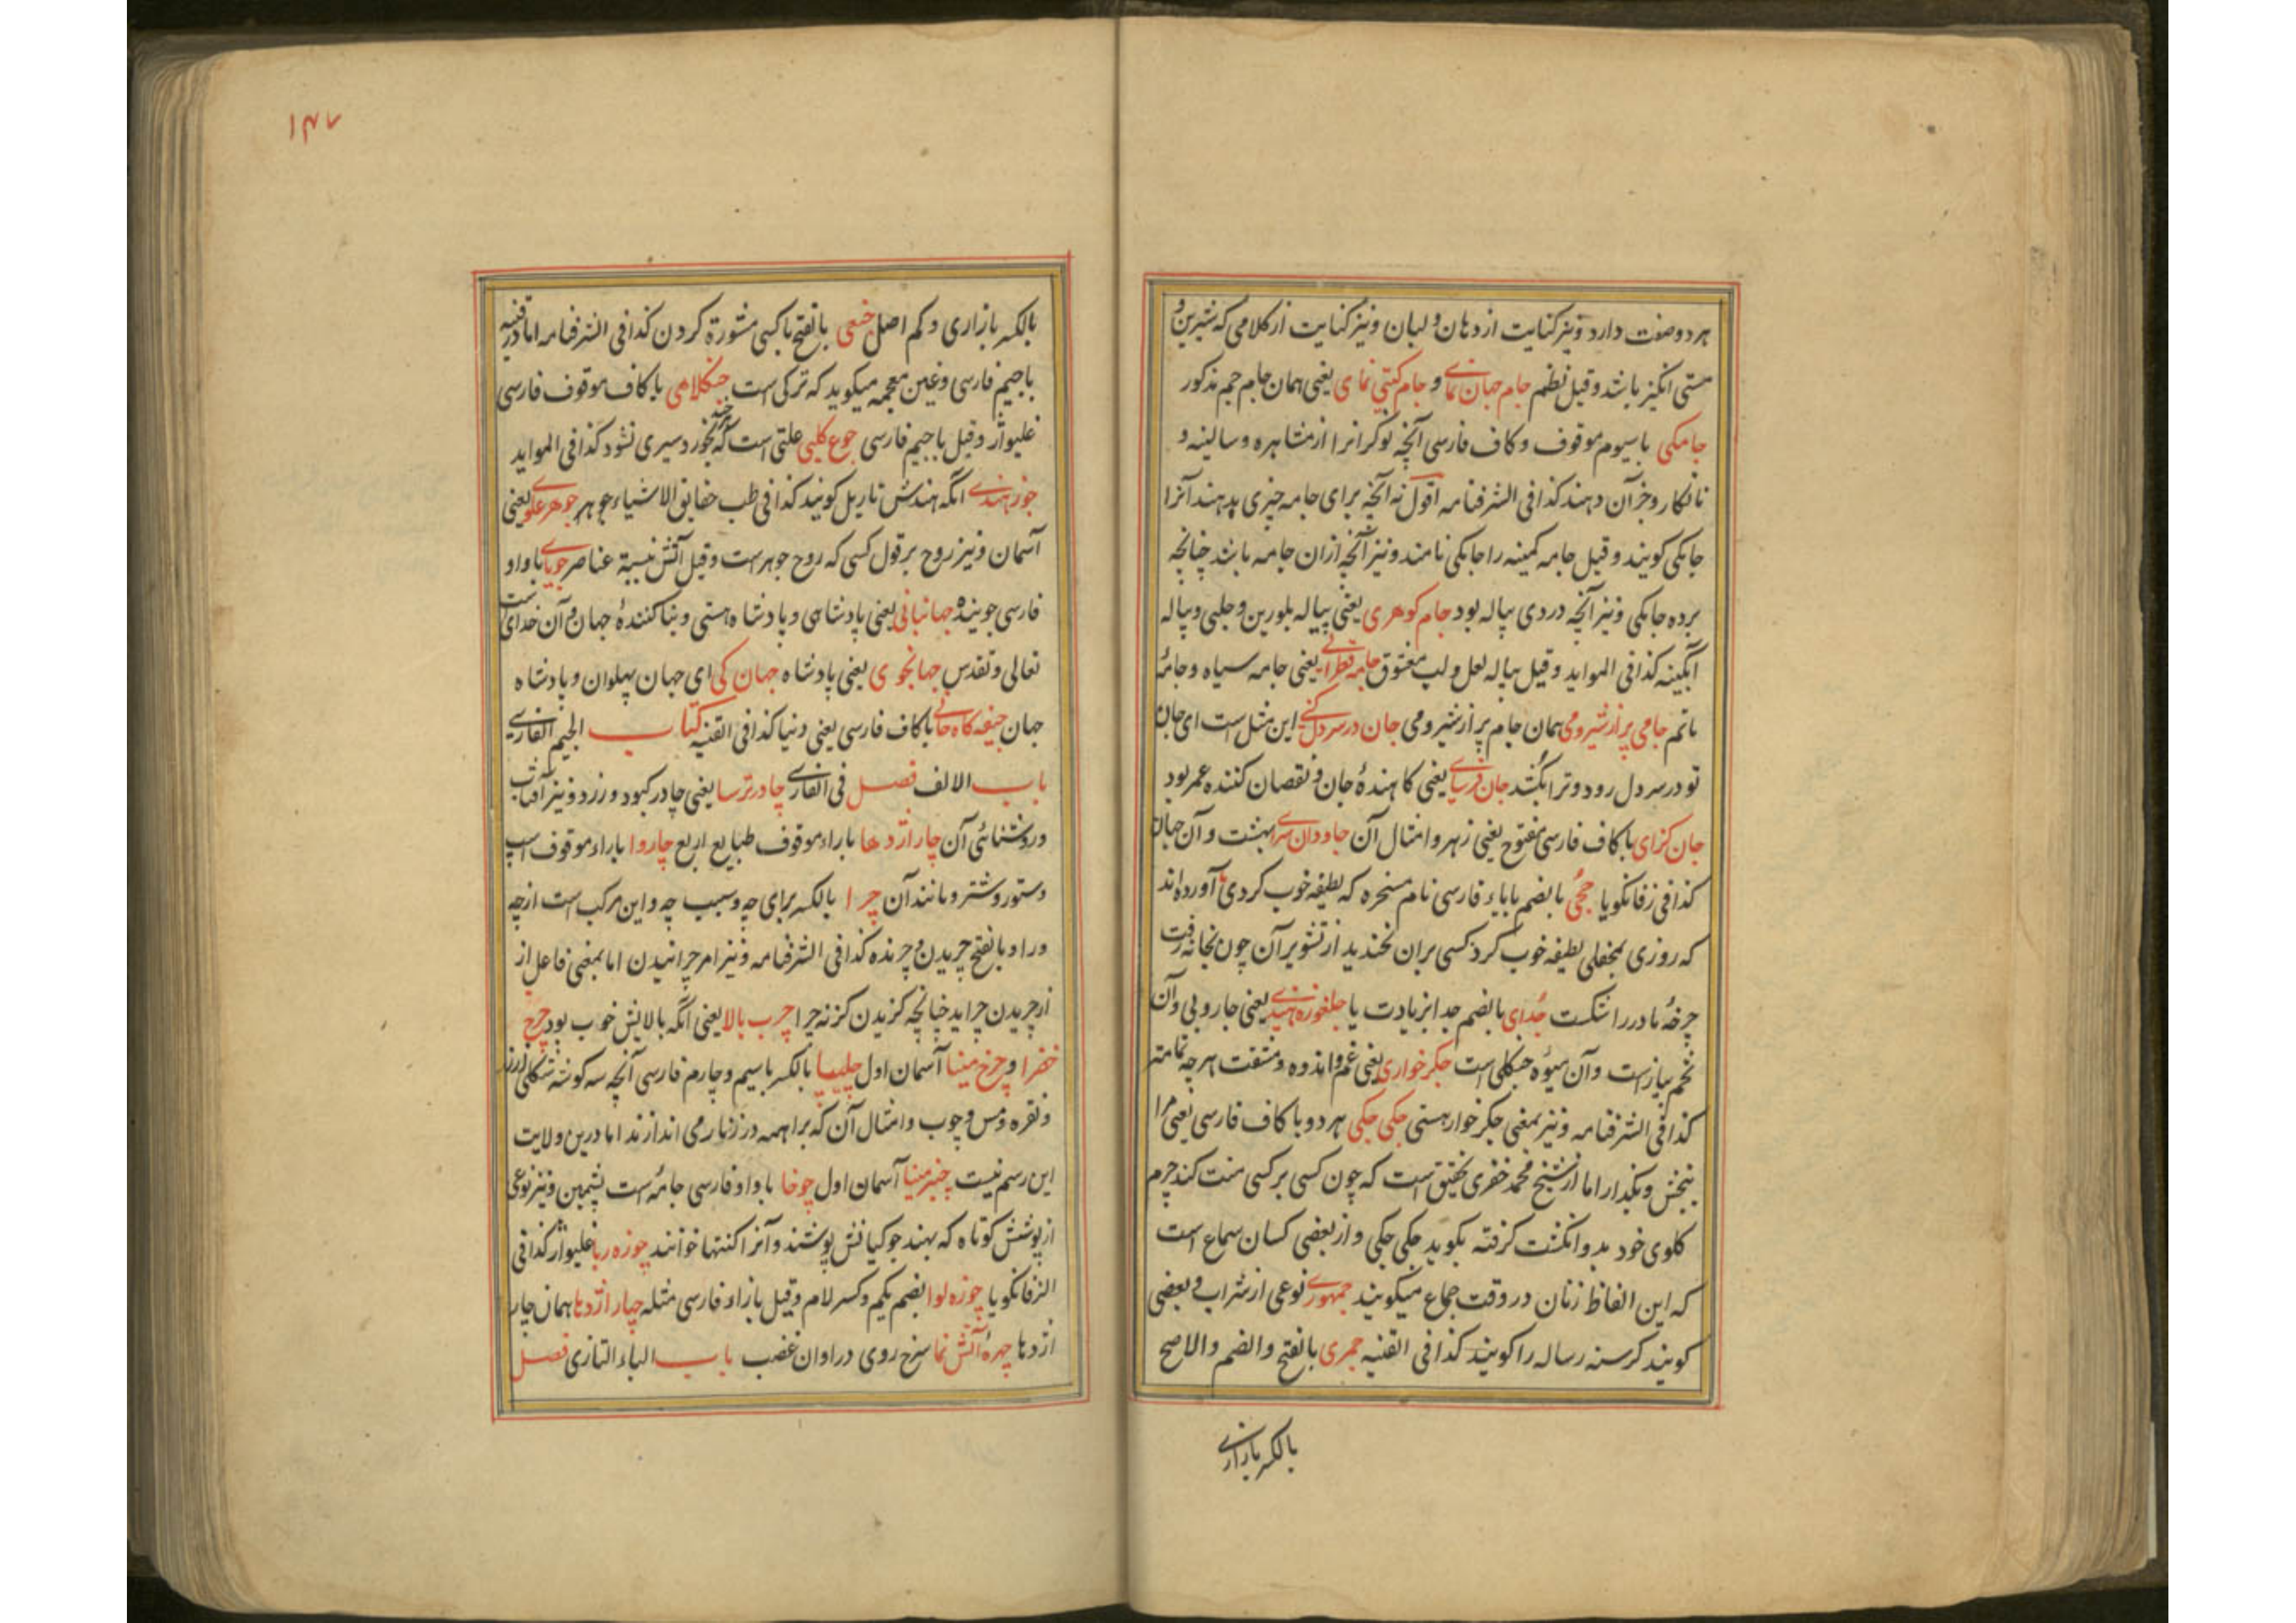 هر دو صفت دارد و نیز کنایت از دهان و لبان و نیز کنایت از کلامی که شیرین و
مستی انگیز باشد و قیل نظم جام جهان نمای و جام کیتی نمای یعنی همان جام جم مذکور
جامکی با سیوم موقوف و کاف فارسی آنچه نوکرانرا از مشاهره و سالینه و
نانکار و جز آن دهند کذا فی الشرفنامه اقول نه آنچه برای جامه چیزی بدهند آنرا
جامکی کویند و قیل جامه کمینه را جامکی نامند و نیز آنچه ازان جامه باشد چنانچه
برده جامکی و نیز آنچه دردی پیاله بود جام کوهری یعنی پیاله بلورین و حلبی و پیاله
آبکینه کذا فی المواید و قیل پیاله لعل و لب معشوق جامه قطرانی یعنی جامه سیاه و جامۀ
ماتم جامی پر از شیر و می همان جام پر از شیر و می جان در سر دل کنی این مثل است ای جان
تو در سر دل رود و ترا بکشد جان فرسای یعنی کاهندۀ جان و نقصان کننده عمر بود
جان کزای با کاف فارسی مفتوح یعنی زهر و امثال آن جاودان سرای بهشت و آن جهان
کذا فی زفانکویا جحی بالضم بابای فارسی نام مسخره که لطیفه خوب کردی آورده اند
که روزی بمحفلی لطیفه خوب کرد کسی بران نخندید از تشویر آن چون بخانه رفت
چرخۀ مادر را شکست جدای بالضم جدا بزیادت یا جلغوزه هندی یعنی جاروبی و آن
تخم پیاز است و آن میوۀ جنکلی است جکر خواری یعنی غم و اندوه و مشقت هر چه تمامتر
کذا فی الشرفنامه و نیز بمعنی جکر خوار هستی جکی جکی هر دو با کاف فارسی یعنی مرا
ببخش و بکذار اما از شیخ محمد خضری تحقیق است که چون کسی بر کسی منت کند چرم
کلوی خود بدو انکشت کرفته بکوید جکی جکی و از بعضی کسان سماع است
که این الفاظ زنان در وقت جماع میکویند جمهوری نوعی از شراب و بعضی
کویند کرسنه رساله را کویند کذا فی القنیه جمری بالفتح و الضم و الاصح
بالکسر بازاری
۱۴۷
بالکسر بازاری و کم اصل جنعی بالفتح با کسی مشورة کردن کذا فی الشرفنامه اما در قنیه
باجیم فارسی و غین معجمه میکوید که ترکی است جنکلاهی با کاف موقوف فارسی
غلیواژ و قیل باجیم فارسی جوع کلبی علتی است که هر چه بخورد سیری نشود کذا فی المواید
جوز هندی آنکه هندش ناریل کویند کذا فی طب حقایق الاشیاء جوهر جوهر علوی یعنی
آسمان و نیز روح بر قول کسی که روح جوهر است و قیل آتش نسبة عناصر جویای باواو
فارسی جوینده جهانبانی یعنی پادشاهی و پادشاه هستی و بنا کنندۀ جهان و آن خدای است
تعالی و تقدس جهانجوی یعنی پادشاه جهان کی ای جهان پهلوان و پادشاه
جهان جیفه کاه خاکی باکاف فارسی یعنی دنیا کذا فی القنیه کتاب الجیم الفارسی
باب الالف فصل فی الفارسی چادر ترسا یعنی چادر کبود و زرد و نیز آفتاب
و روشنائی آن چار اژدها باراء موقوف طبایع اربع چاروا باراء موقوف اسپ
و ستور و شتر و مانند آن چرا بالکسر برای چه و سبب چه و این مرکب است از چه
و را و بالفتح چریدن و چرنده کذا فی الشرفنامه و نیز امر چرانیدن اما بمعنی فاعل از
از چریدن چراید چنانچه کزیدن کزنه چرا چرب بالا یعنی آنکه بالایش خوب بود چرخ
خضرا و چرخ مینا آسمان اول چلیپا بالکسر باسیم و چارم فارسی آنچه سه کوشه شکلی از زر
و نقره و مس و چوب و امثال آن که براهمه در زنار می اندازند اما درین ولایت
این رسم نیست چنبر مینا آسمان اول چوخا باواو فارسی جامۀ است پشمین و نیز نوعی
از پوشش کوتاه که بهند جوکیانش پوشند و آنرا کنتها خوانند چوزه ربا غلیواژ کذا فی
الزفانکویا چوزه لوا بضم یکم و کسر لام و قیل بازاء فارسی مثله چهار اژدها همان چار
اژدها چهرۀ آتش نما سرخ روی در اوان غضب باب الباء التازی فصل